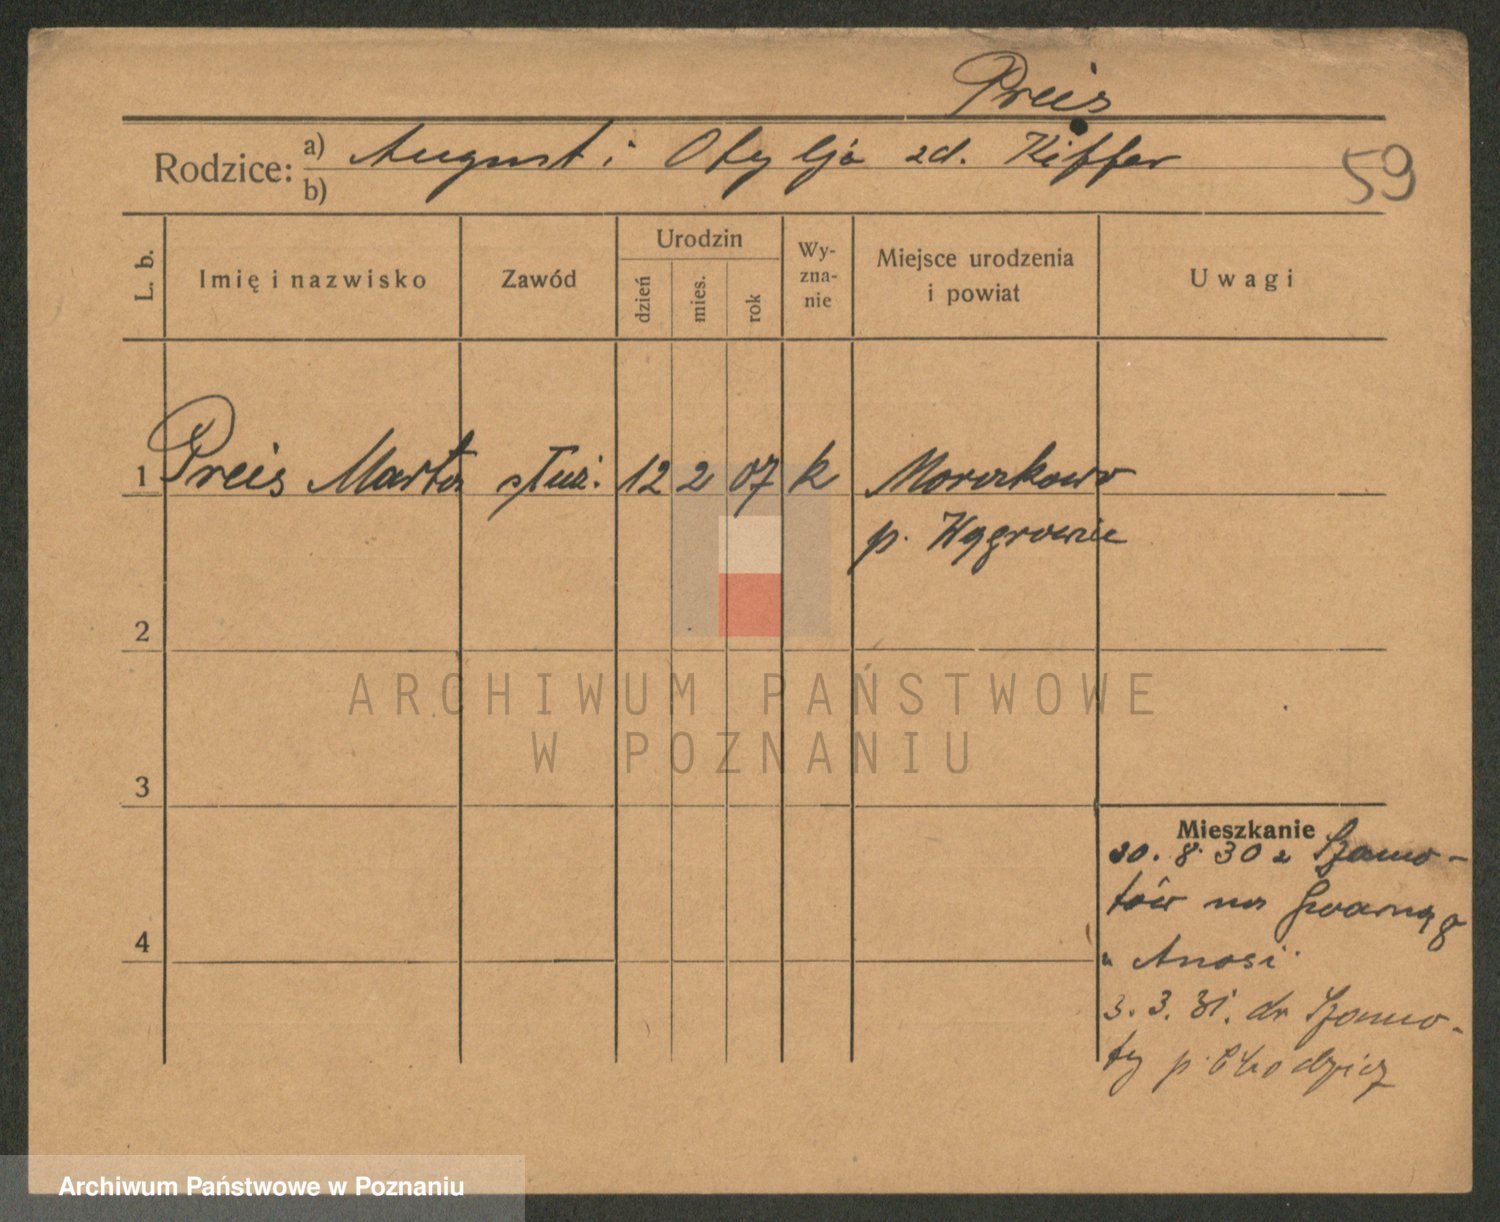 Preis
Rodzice: a) August i Otylja zd. Kiffer
b)
59
L. b. Imię i nazwisko Zawód Urodzin dzień mies. rok Wyznanie Miejsce urodzenia i powiat Uwagi
1 Preis Marta służ. 12 2 07 k
p. Wągrowiec
2
ARCHIWUM PAŃSTWOWE
W POZNANIU
3
Mieszkanie
30. 8. 30 z Szamo-
tów na
u
3. 3. 31. do Szamo-
ty p. Chodzież
4
Archiwum Państwowe w Poznaniu